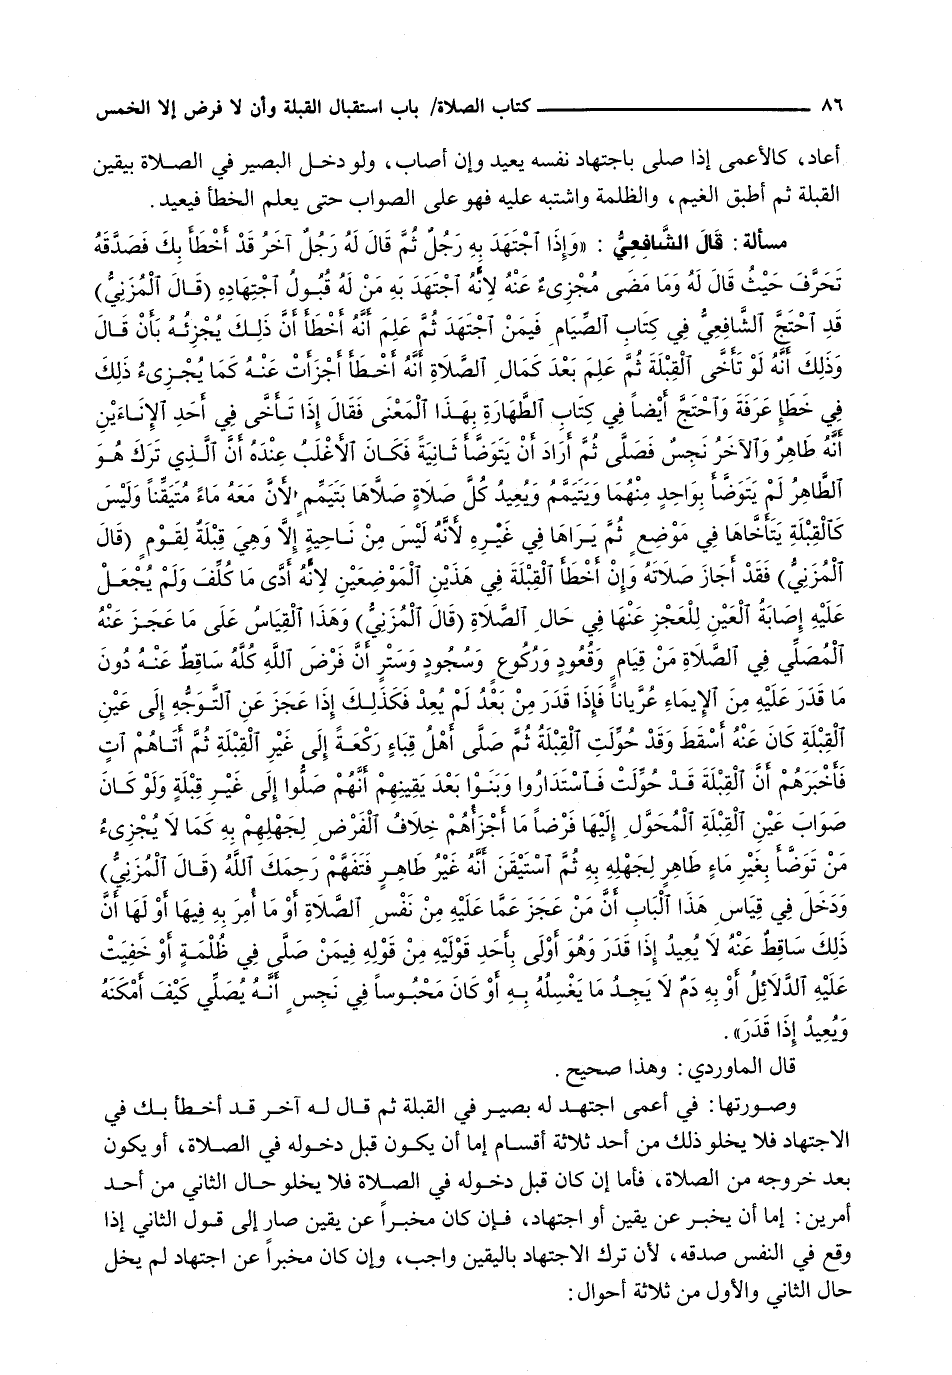 ٨٦ ــــــــــــــــ كتاب الصلاة/ باب استقبال القبلة وأن لا فرض إلا الخمس
أعاد، كالأعمى إذا صلى باجتهاد نفسه يعيد وإن أصاب، ولو دخل البصير في الصلاة بيقين
القبلة ثم أطبق الغيم، والظلمة واشتبه عليه فهو على الصواب حتى يعلم الخطأ فيعيد.
مسألة: قَالَ الشَّافِعِيُّ: «وَإِذَا ٱجْتَهَدَ بِهِ رَجُلٌ ثُمَّ قَالَ لَهُ رَجُلٌ آخَرُ قَدْ أَخْطَأَ بِكَ فَصَدَّقَهُ
تَحَرَّفَ حَيْثُ قَالَ لَهُ وَمَا مَضَى مُجْزِىءٌ عَنْهُ لِأَنَّهُ ٱجْتَهَدَ بِهِ مَنْ لَهُ قُبُولُ ٱجْتِهَادِهِ (قَالَ ٱلْمُزَنِيُّ)
قَدِ ٱحْتَجَّ ٱلشَّافِعِيُّ فِي كِتَابِ ٱلصِّيَامِ فِيمَنْ ٱجْتَهَدَ ثُمَّ عَلِمَ أَنَّهُ أَخْطَأَ أَنَّ ذَلِكَ يُجْزِئُهُ بِأَنْ قَالَ
وَذَلِكَ أَنَّهُ لَوْ تَأَخَّى ٱلْقِبْلَةَ ثُمَّ عَلِمَ بَعْدَ كَمَالِ ٱلصَّلَاةِ أَنَّهُ أَخْطَأَ أَجْزَأَتْ عَنْهُ كَمَا يُجْزِىءُ ذَلِكَ
فِي خَطَإِ عَرَفَةَ وَٱحْتَجَّ أَيْضاً فِي كِتَابِ ٱلطَّهَارَةِ بِهَذَا ٱلْمَعْنَى فَقَالَ إِذَا تَأَخَّى فِي أَحَدِ ٱلإِنَاءَيْنِ
أَنَّهُ طَاهِرٌ وَٱلآخَرُ نَجِسٌ فَصَلَّى ثُمَّ أَرَادَ أَنْ يَتَوَضَّأَ ثَانِيَةً فَكَانَ ٱلأَغْلَبُ عِنْدَهُ أَنَّ ٱلَّذِي تَرَكَ هُوَ
ٱلطَّاهِرُ لَمْ يَتَوَضَّأْ بِوَاحِدٍ مِنْهُمَا وَيَتَيَمَّمُ وَيُعِيدُ كُلَّ صَلَاةٍ صَلَّاهَا بِتَيَمُّمٍ لأَنَّ مَعَهُ مَاءً مُتَيَقَّناً وَلَيْسَ
كَٱلْقِبْلَةِ يَتَأَخَّاهَا فِي مَوْضِعٍ ثُمَّ يَرَاهَا فِي غَيْرِهِ لأَنَّهُ لَيْسَ مِنْ نَاحِيَةٍ إِلَّا وَهِيَ قِبْلَةٌ لِقَوْمٍ (قَالَ
ٱلْمُزَنِيُّ) فَقَدْ أَجَازَ صَلَاتَهُ وَإِنْ أَخْطَأَ ٱلْقِبْلَةَ فِي هَذَيْنِ ٱلْمَوْضِعَيْنِ لِأَنَّهُ أَدَّى مَا كُلِّفَ وَلَمْ يُجْعَلْ
عَلَيْهِ إِصَابَةُ ٱلْعَيْنِ لِلْعَجْزِ عَنْهَا فِي حَالِ ٱلصَّلَاةِ (قَالَ ٱلْمُزَنِيُّ) وَهَذَا ٱلْقِيَاسُ عَلَى مَا عَجَزَ عَنْهُ
ٱلْمُصَلِّي فِي ٱلصَّلَاةِ مَنْ قِيَامٍ وَقُعُودٍ وَرُكُوعٍ وَسُجُودٍ وَسَتْرٍ أَنَّ فَرْضَ ٱللَّهِ كُلَّهُ سَاقِطٌ عَنْهُ دُونَ
مَا قَدَرَ عَلَيْهِ مِنَ ٱلإِيمَاءِ عُرْيَاناً فَإِذَا قَدَرَ مِنْ بَعْدُ لَمْ يُعِدْ فَكَذَلِكَ إِذَا عَجَزَ عَنِ ٱلتَّوَجُّهِ إِلَى عَيْنِ
ٱلْقِبْلَةِ كَانَ عَنْهُ أَسْقَطَ وَقَدْ حُوِّلَتِ ٱلْقِبْلَةُ ثُمَّ صَلَّى أَهْلُ قِبَاءٍ رَكْعَةً إِلَى غَيْرِ ٱلْقِبْلَةِ ثُمَّ أَتَاهُمْ آتٍ
فَأَخْبَرَهُمْ أَنَّ ٱلْقِبْلَةَ قَدْ حُوِّلَتْ فَٱسْتَدَارُوا وَبَنَوْا بَعْدَ يَقِينِهِمْ أَنَّهُمْ صَلُّوا إِلَى غَيْرِ قِبْلَةٍ وَلَوْ كَانَ
صَوَابَ عَيْنِ ٱلْقِبْلَةِ ٱلْمُحَوَّلِ إِلَيْهَا فَرْضاً مَا أَجْزَأَهُمْ خِلَافُ ٱلْفَرْضِ لِجَهْلِهِمْ بِهِ كَمَا لَا يُجْزِىءُ
مَنْ تَوَضَّأَ بِغَيْرِ مَاءٍ طَاهِرٍ لِجَهْلِهِ بِهِ ثُمَّ ٱسْتَيْقَنَ أَنَّهُ غَيْرُ طَاهِرٍ فَتَفَهَّمْ رَحِمَكَ ٱللَّهُ (قَالَ ٱلْمُزَنِيُّ)
وَدَخَلَ فِي قِيَاسِ هَذَا ٱلْبَابِ أَنَّ مَنْ عَجَزَ عَمَّا عَلَيْهِ مِنْ نَفْسِ ٱلصَّلَاةِ أَوْ مَا أُمِرَ بِهِ فِيهَا أَوْ لَهَا أَنَّ
ذَلِكَ سَاقِطٌ عَنْهُ لَا يُعِيدُ إِذَا قَدَرَ وَهُوَ أَوْلَى بِأَحَدِ قَوْلَيْهِ مِنْ قَوْلِهِ فِيمَنْ صَلَّى فِي ظُلْمَةٍ أَوْ خَفِيَتْ
عَلَيْهِ ٱلدَّلَائِلُ أَوْ بِهِ دَمٌ لَا يَجِدُ مَا يَغْسِلُهُ بِهِ أَوْ كَانَ مَحْبُوساً فِي نَجِسٍ أَنَّهُ يُصَلِّي كَيْفَ أَمْكَنَهُ
وَيُعِيدُ إِذَا قَدَرَ».
قال الماوردي: وهذا صحيح.
وصورتها: في أعمى اجتهد له بصير في القبلة ثم قال له آخر قد أخطأ بك في
الاجتهاد فلا يخلو ذلك من أحد ثلاثة أقسام إما أن يكون قبل دخوله في الصلاة، أو يكون
بعد خروجه من الصلاة، فأما إن كان قبل دخوله في الصلاة فلا يخلو حال الثاني من أحد
أمرين: إما أن يخبر عن يقين أو اجتهاد، فإن كان مخبراً عن يقين صار إلى قول الثاني إذا
وقع في النفس صدقه، لأن ترك الاجتهاد باليقين واجب، وإن كان مخبراً عن اجتهاد لم يخل
حال الثاني والأول من ثلاثة أحوال: